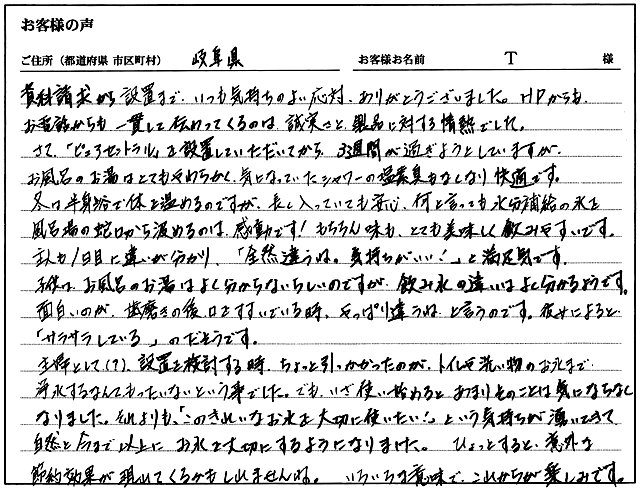 お客様の声
ご住所（都道府県 市区町村） 岐阜県 お客様お名前 T 様
資料請求から設置まで、いつも気持ちのよい応対、ありがとうございました。HPからも
お電話からも一貫して伝わってくるのは、誠実さと製品に対する情熱でした。
さて、「ピュアセントラル」を設置していただいてから、3週間が過ぎようとしていますが、
お風呂のお湯はとてもやわらかく、気になっていたシャワーの塩素臭もなくなり快適です。
冬は半身浴で体を温めるのですが、長く入っていても安心、何と言っても水分補給の水を
風呂場の蛇口から汲めるのは、感動です！もちろん味も、とても美味しく飲みやすいです。
主人も1日目に違いが分かり、「全然違うね。気持ちがいい！」と満足気です。
子供は、お風呂のお湯はよく分からないらしいのですが、飲み水の違いはよく分かるようです。
面白いのが、歯磨きの後、口をすすいでいる時、やっぱり違うねと言うのです。彼女によると
「サラサラしている」のだそうです。
主婦として(?)、設置を検討する時、ちょっと引っかかったのが、トイレや洗い物のお水まで
浄水するなんてもったいないという事でした。でも、いざ使い始めると、あまりそのことは気にならなく
なりました。それよりも、「このきれいなお水を大切に使いたい！」という気持ちが湧いてきて
自然と今まで以上にお水を大切にするようになりました。ひょっとすると、意外な
節約効果が現れてくるかもしれませんね。いろいろな意味で、これからが楽しみです。